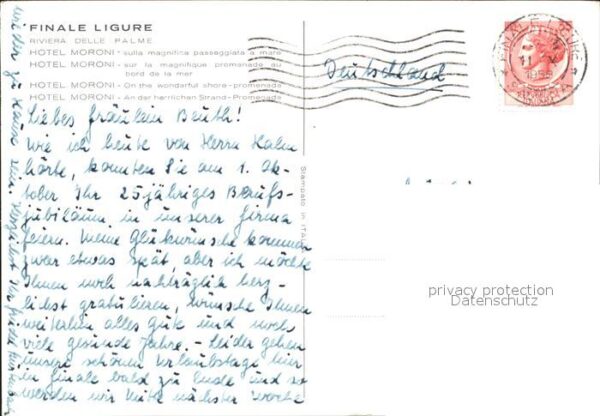 FINALE LIGURE
RIVIERA DELLE PALME
HOTEL MORONI - sulla magnifica passeggiata a mare
HOTEL MORONI - sur la magnifique promenade au
bord de la mer
HOTEL MORONI - On the wonderful shore-promenade
HOTEL MORONI - An der herrlichen Strand-Promenade
Deutschland
Liebes Fräulein Beuth!
Wie ich heute von Herrn Kalm
hörte, konnten Sie am 1. Ok-
tober Ihr 25jähriges Berufs-
jubiläum in unserer Firma
feiern. Meine Glückwünsche kommen
zwar etwas spät, aber ich möchte
Ihnen noch nachträglich herz-
lichst gratulieren, wünsche Ihnen
weiterhin alles gute und noch
viele gesunde Jahre. - Leider gehen
unsere schönen Urlaubstage hier
in Finale bald zu Ende und so
werden wir Mitte nächster Woche
wieder zu Hause sein. Herzlichst Ihr
Stampato in ITAL
privacy protection
Datenschutz